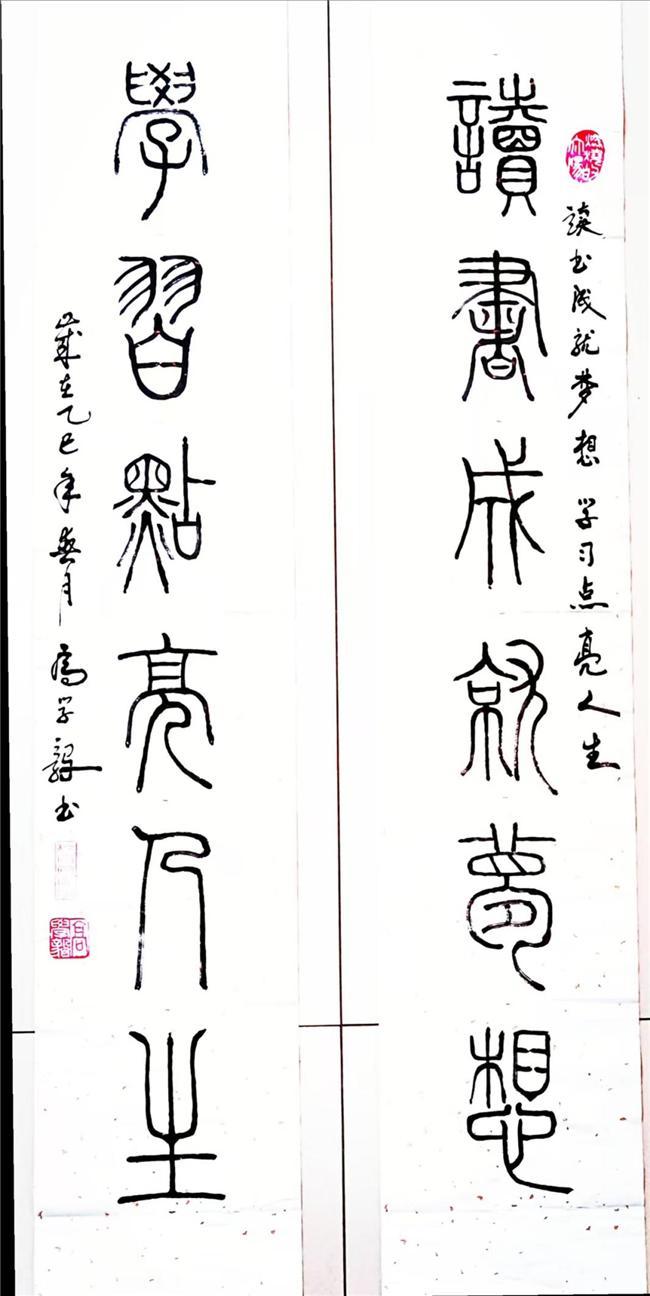 读书成就梦想 学习点亮人生
讀書成就夢想
學習點亮人生
歲在乙巳年春月 高学毅书